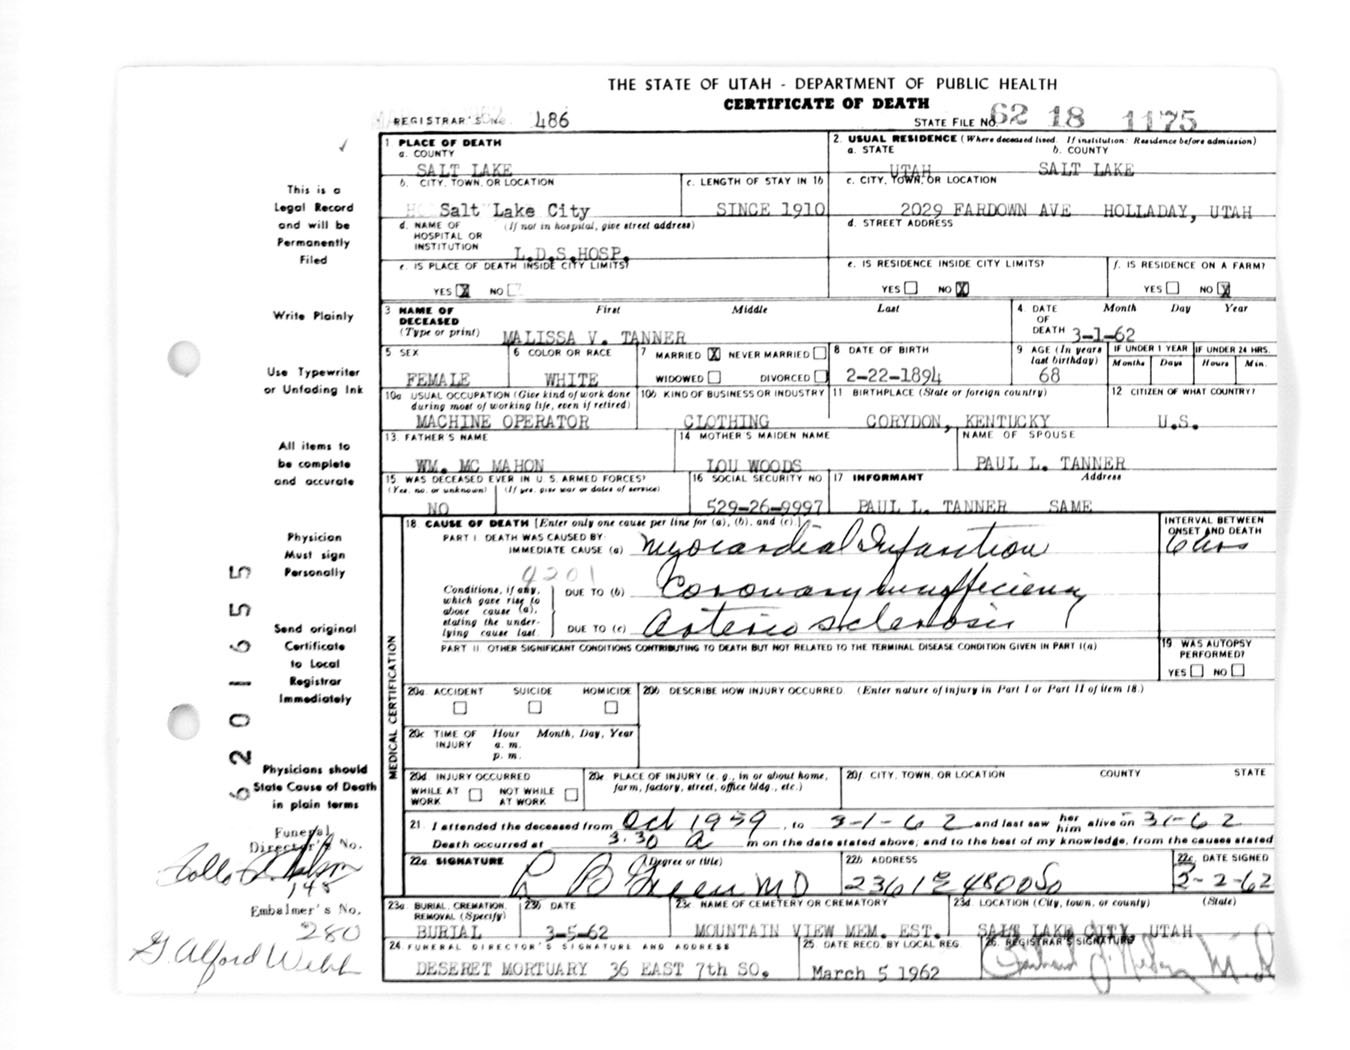 THE STATE OF UTAH - DEPARTMENT OF PUBLIC HEALTH
CERTIFICATE OF DEATH
REGISTRAR'S No. 486
STATE FILE No. 62 18 1175
1 PLACE OF DEATH
a. COUNTY
SALT LAKE
2. USUAL RESIDENCE (Where deceased lived. If institution: Residence before admission)
a. STATE b. COUNTY
UTAH SALT LAKE
b. CITY, TOWN, OR LOCATION
Salt Lake City
c. LENGTH OF STAY IN 1b
SINCE 1910
c. CITY, TOWN, OR LOCATION
2029 FARDOWN AVE HOLLADAY, UTAH
d. NAME OF (If not in hospital, give street address)
HOSPITAL OR
INSTITUTION
L.D.S.HOSP.
d. STREET ADDRESS
e. IS PLACE OF DEATH INSIDE CITY LIMITS?
YES X NO
e. IS RESIDENCE INSIDE CITY LIMITS?
YES NO X
f. IS RESIDENCE ON A FARM?
YES NO X
3 NAME OF DECEASED
(Type or print)
First Middle Last
MALISSA V. TANNER
4. DATE OF DEATH
Month Day Year
3-1-62
5 SEX
FEMALE
6 COLOR OR RACE
WHITE
7 MARRIED X NEVER MARRIED
WIDOWED DIVORCED
8 DATE OF BIRTH
2-22-1894
9 AGE (In years last birthday)
68
IF UNDER 1 YEAR
Months Days
IF UNDER 24 HRS.
Hours Min.
10a USUAL OCCUPATION (Give kind of work done
during most of working life, even if retired)
MACHINE OPERATOR
10b KIND OF BUSINESS OR INDUSTRY
CLOTHING
11 BIRTHPLACE (State or foreign country)
CORYDON, KENTUCKY
12 CITIZEN OF WHAT COUNTRY?
U.S.
13. FATHER'S NAME
WM. MC MAHON
14 MOTHER'S MAIDEN NAME
LOU WOODS
NAME OF SPOUSE
PAUL L. TANNER
15 WAS DECEASED EVER IN U. S. ARMED FORCES?
(Yes, no, or unknown) (If yes, give war or dates of service)
NO
16 SOCIAL SECURITY NO
529-26-9997
17 INFORMANT Address
PAUL L. TANNER SAME
18 CAUSE OF DEATH [Enter only one cause per line for (a), (b), and (c).]
PART I DEATH WAS CAUSED BY:
IMMEDIATE CAUSE (a) Myocardial Infarction
INTERVAL BETWEEN
ONSET AND DEATH
4201
Conditions, if any,
which gave rise to
above cause (a),
stating the under-
lying cause last.
DUE TO (b) Coronary insufficiency
DUE TO (c) Arterio sclerosis
PART II OTHER SIGNIFICANT CONDITIONS CONTRIBUTING TO DEATH BUT NOT RELATED TO THE TERMINAL DISEASE CONDITION GIVEN IN PART I(a)
19 WAS AUTOPSY
PERFORMED?
YES NO
MEDICAL CERTIFICATION
20a. ACCIDENT SUICIDE HOMICIDE
20b DESCRIBE HOW INJURY OCCURRED (Enter nature of injury in Part I or Part II of item 18.)
20c TIME OF INJURY Hour Month, Day, Year
a. m.
p. m.
20d. INJURY OCCURRED
WHILE AT WORK NOT WHILE AT WORK
20e PLACE OF INJURY (e. g., in or about home,
farm, factory, street, office bldg., etc.)
20f CITY, TOWN, OR LOCATION COUNTY STATE
21 I attended the deceased from Oct 1959, to 3-1-62 and last saw her him alive on 3 1-62
Death occurred at 3:30 A m on the date stated above; and to the best of my knowledge, from the causes stated
22a SIGNATURE (Degree or title)
L B Green MD
22b ADDRESS
2361 E 4800 So
22c. DATE SIGNED
3-2-62
23a BURIAL, CREMATION,
REMOVAL (Specify)
BURIAL
23b DATE
3-5-62
23c NAME OF CEMETERY OR CREMATORY
MOUNTAIN VIEW MEM. EST.
23d. LOCATION (City, town, or county) (State)
SALT LAKE CITY, UTAH
24 FUNERAL DIRECTOR'S SIGNATURE AND ADDRESS
DESERET MORTUARY 36 EAST 7th SO.
25. DATE RECD. BY LOCAL REG.
March 5 1962
26. REGISTRAR'S SIGNATURE
This is a
Legal Record
and will be
Permanently
Filed
Write Plainly
Use Typewriter
or Unfading Ink
All items to
be complete
and accurate
Physician
Must sign
Personally
Send original
Certificate
to Local
Registrar
Immediately
Physicians should
State Cause of Death
in plain terms
Funeral
Director's No.
145
Embalmer's No.
280
G. Alford Webb
6201655